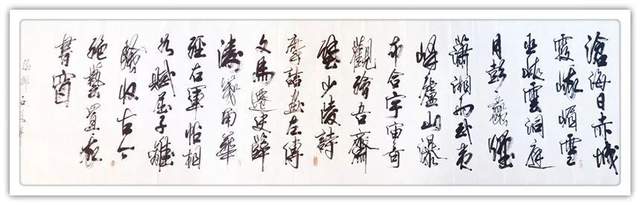 滄海日赤城
霞峨嵋雪
巫峽雲洞庭
月彭蠡煙
瀟湘雨武夷
峰廬山瀑
布合宇宙奇
觀繪吾齋
壁少陵詩
摩詰畫左傳
文馬遷史薛
濤箋南華
經右軍帖相
如賦屈子離
騷收古今
絕藝置我
書窗